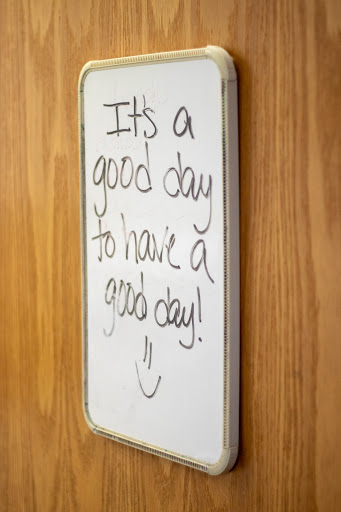 It's a
good day
to have a
good day!